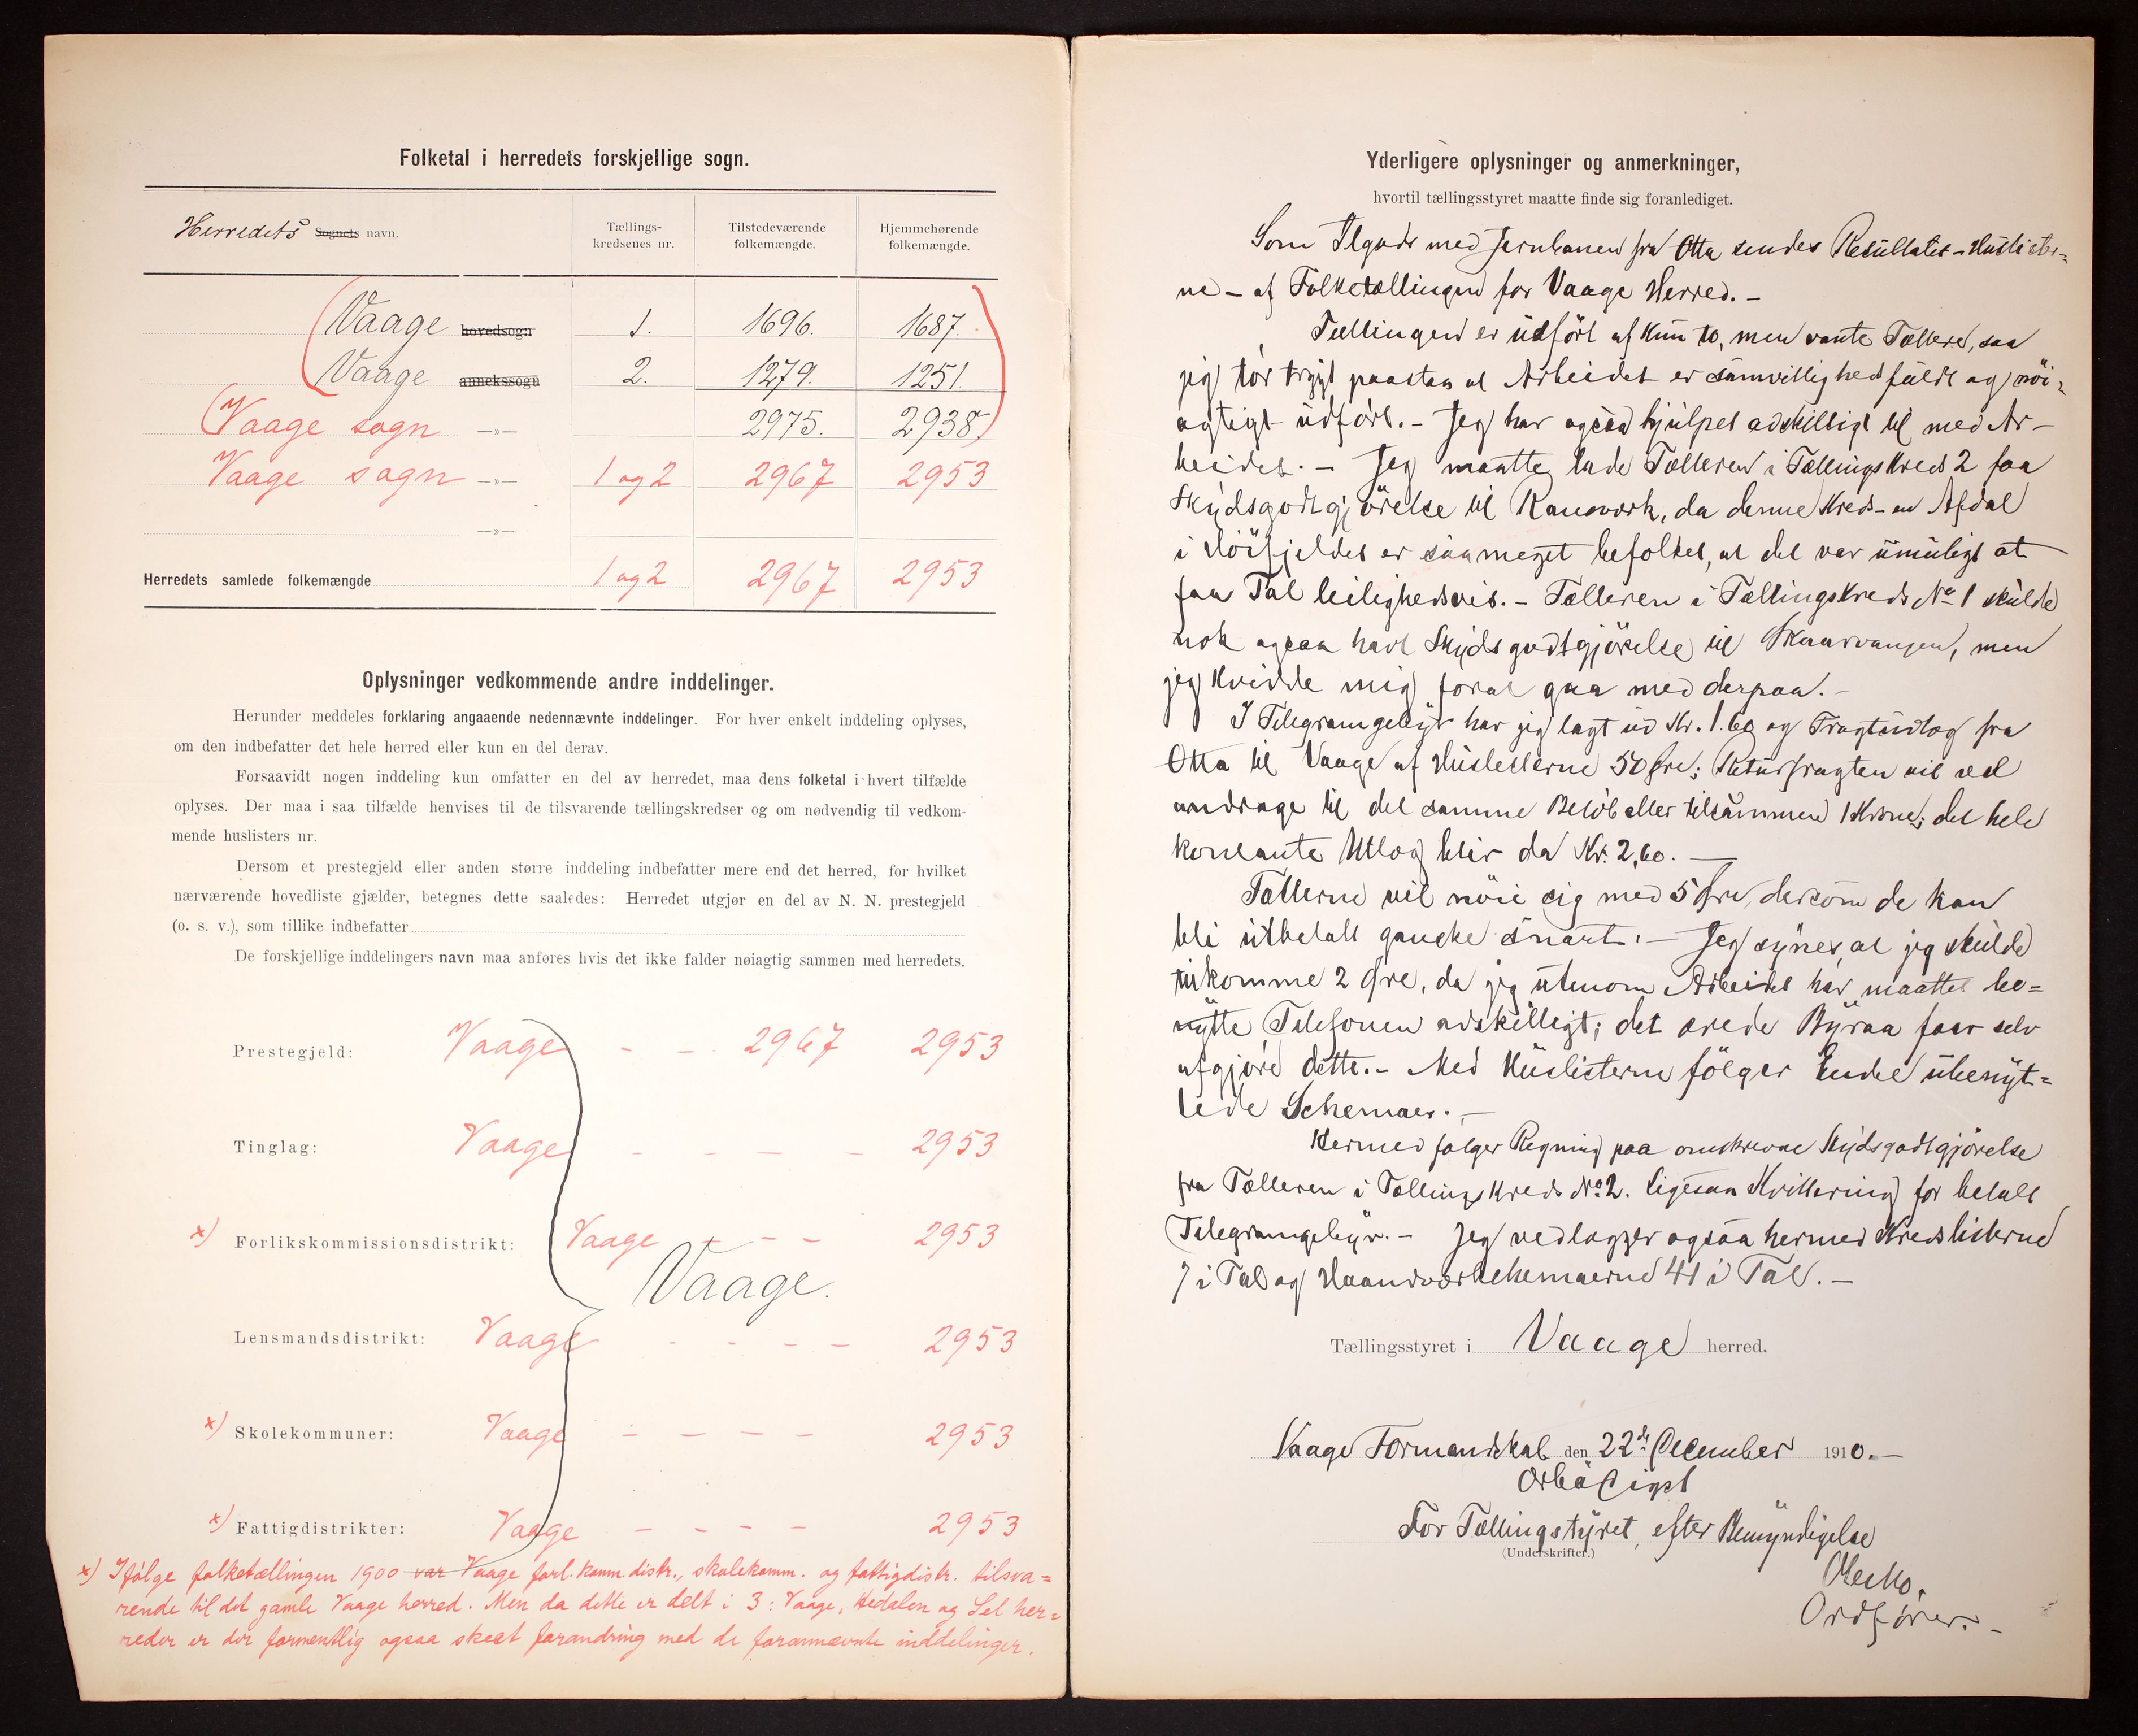 Folketal i herredets forskjellige sogn.
Herredets Sognets navn.
Tællings-
kredsenes nr.
Tilstedeværende
folkemængde.
Hjemmehørende
folkemængde.
Vaage hovedsogn 1. 1696. 1687.
Vaage annekssogn 2. 1279. 1251.
Vaage sogn —»— 2975. 2938.
Vaage sogn —»— 1 og 2 2967 2953
—»—
Herredets samlede folkemængde 1 og 2 2967 2953
Oplysninger vedkommende andre inddelinger.
Herunder meddeles forklaring angaaende nedennævnte inddelinger. For hver enkelt inddeling oplyses,
om den indbefatter det hele herred eller kun en del derav.
Forsaavidt nogen inddeling kun omfatter en del av herredet, maa dens folketal i hvert tilfælde
oplyses. Der maa i saa tilfælde henvises til de tilsvarende tællingskredser og om nødvendig til vedkom-
mende huslisters nr.
Dersom et prestegjeld eller anden større inddeling indbefatter mere end det herred, for hvilket
nærværende hovedliste gjælder, betegnes dette saaledes: Herredet utgjør en del av N. N. prestegjeld
(o. s. v.), som tillike indbefatter
De forskjellige inddelingers navn maa anføres hvis det ikke falder nøiagtig sammen med herredets.
Prestegjeld: Vaage - - 2967 2953
Tinglag: Vaage - - - - 2953
x) Forlikskommissionsdistrikt: Vaage - - - 2953
Vaage.
Lensmandsdistrikt: Vaage - - - - 2953
x) Skolekommuner: Vaage - - - - 2953
x) Fattigdistrikter: Vaage - - - - 2953
x) Ifølge folketællingen 1900 var Vaage forl. komm. distr., skolekomm. og fattigdistr. tilsva=
rende til det gamle Vaage herred. Men da dette er delt i 3: Vaage, Hedalen og Sel her=
reder er der formentlig ogsaa skeet forandring med de forannævnte inddelinger.
Yderligere oplysninger og anmerkninger,
hvortil tællingsstyret maatte finde sig foranlediget.
Som Ilgods med Jernbanen fra Otta sendes Resultatet - Huslister=
ne - af Folketællingen for Vaage Herred. -
Tællingen er udført af kun to, men vante Tællere, saa
jeg tør trygt paastaa at Arbeidet er samvittighedsfuldt og nöi=
agtigt udført. - Jeg har ogsaa hjulpet adskilligt til med Ar-
beidet. - Jeg maatte lade Tælleren i Tællingskreds 2 faa
Skydsgodtgjörelse til Randsverk, da denne Kreds - en Afdal
i Höifjeldet er saa meget befolket, at det var umuligt at
faa Tal leilighedsvis. - Tælleren i Tællingskreds No 1 skulde
nok ogsaa havt Skydsgodtgjörelse til Skaarvangen, men
jeg kvidde mig forat gaa med derpaa. -
I Telegramgebyr har jeg lagt ud Kr. 1.60 og Fragtudlæg fra
Otta til Vaage af Huslisterne 50 Øre; Returfragten vil vel
andrage til det samme Beløb eller tilsammen 1 Krone; det hele
kontante Utlæg blir da Kr. 2,60. -
Tællerne vil nöie sig med 5 Øre, dersom de kan
bli utbetalt ganske snart. - Jeg synes, at jeg skulde
tilkomme 2 Øre, da jeg utenom Arbeidet har maattet be=
nytte Telefonen adskilligt; det ærede Byraa faar selv
afgjøre dette. - Med Huslisterne fölger Endel ubenyt=
tede Schemaer. -
Hermed følger Regning paa omskrevne Skydsgodtgjörelse
fra Tælleren i Tællingskreds No 2. ligesaa Kvittering for betalt
Telegramgebyr. - Jeg vedlægger ogsaa hermed Kredslisterne
7 i Tal og Haandværkschemaerne 41 i Tal. -
Tællingsstyret i Vaage herred.
Vaage Formandskab den 22de December 1910. -
Ærbödigst
For Tællingstyret, efter Bemyndigelse
(Underskrifter.)
Ordfører. -